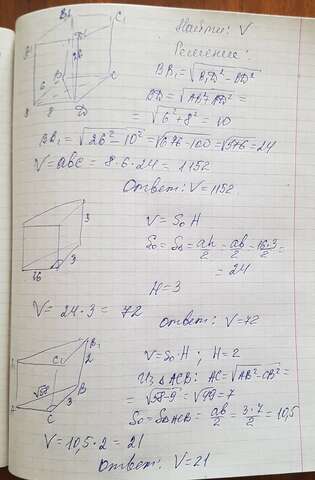 B₁ C₁ Найти: V
Решение:
26
BB₁ = √B₁D² − BD²
B C BD = √AB² + AD² =
6
A 8 D = √6² + 8² = 10
BB₁ = √26² − 10² = √676 − 100 = √576 = 24
V = abc = 8 · 6 · 24 = 1152
Ответ: V = 1152.
V = S₀ H
3 S₀ = SΔ = ah/2 = ab/2 = 16·3/2 =
= 24
16 3 H = 3
V = 24 · 3 = 72
Ответ: V = 72
B₁
C₁ 2 V = S₀ · H ; H = 2
√58 B Из Δ ACB: AC = √AB² − CB² =
A 3 = √58 − 9 = √49 = 7
C S₀ = SΔACB = ab/2 = 3·7/2 = 10,5
V = 10,5 · 2 = 21
Ответ: V = 21